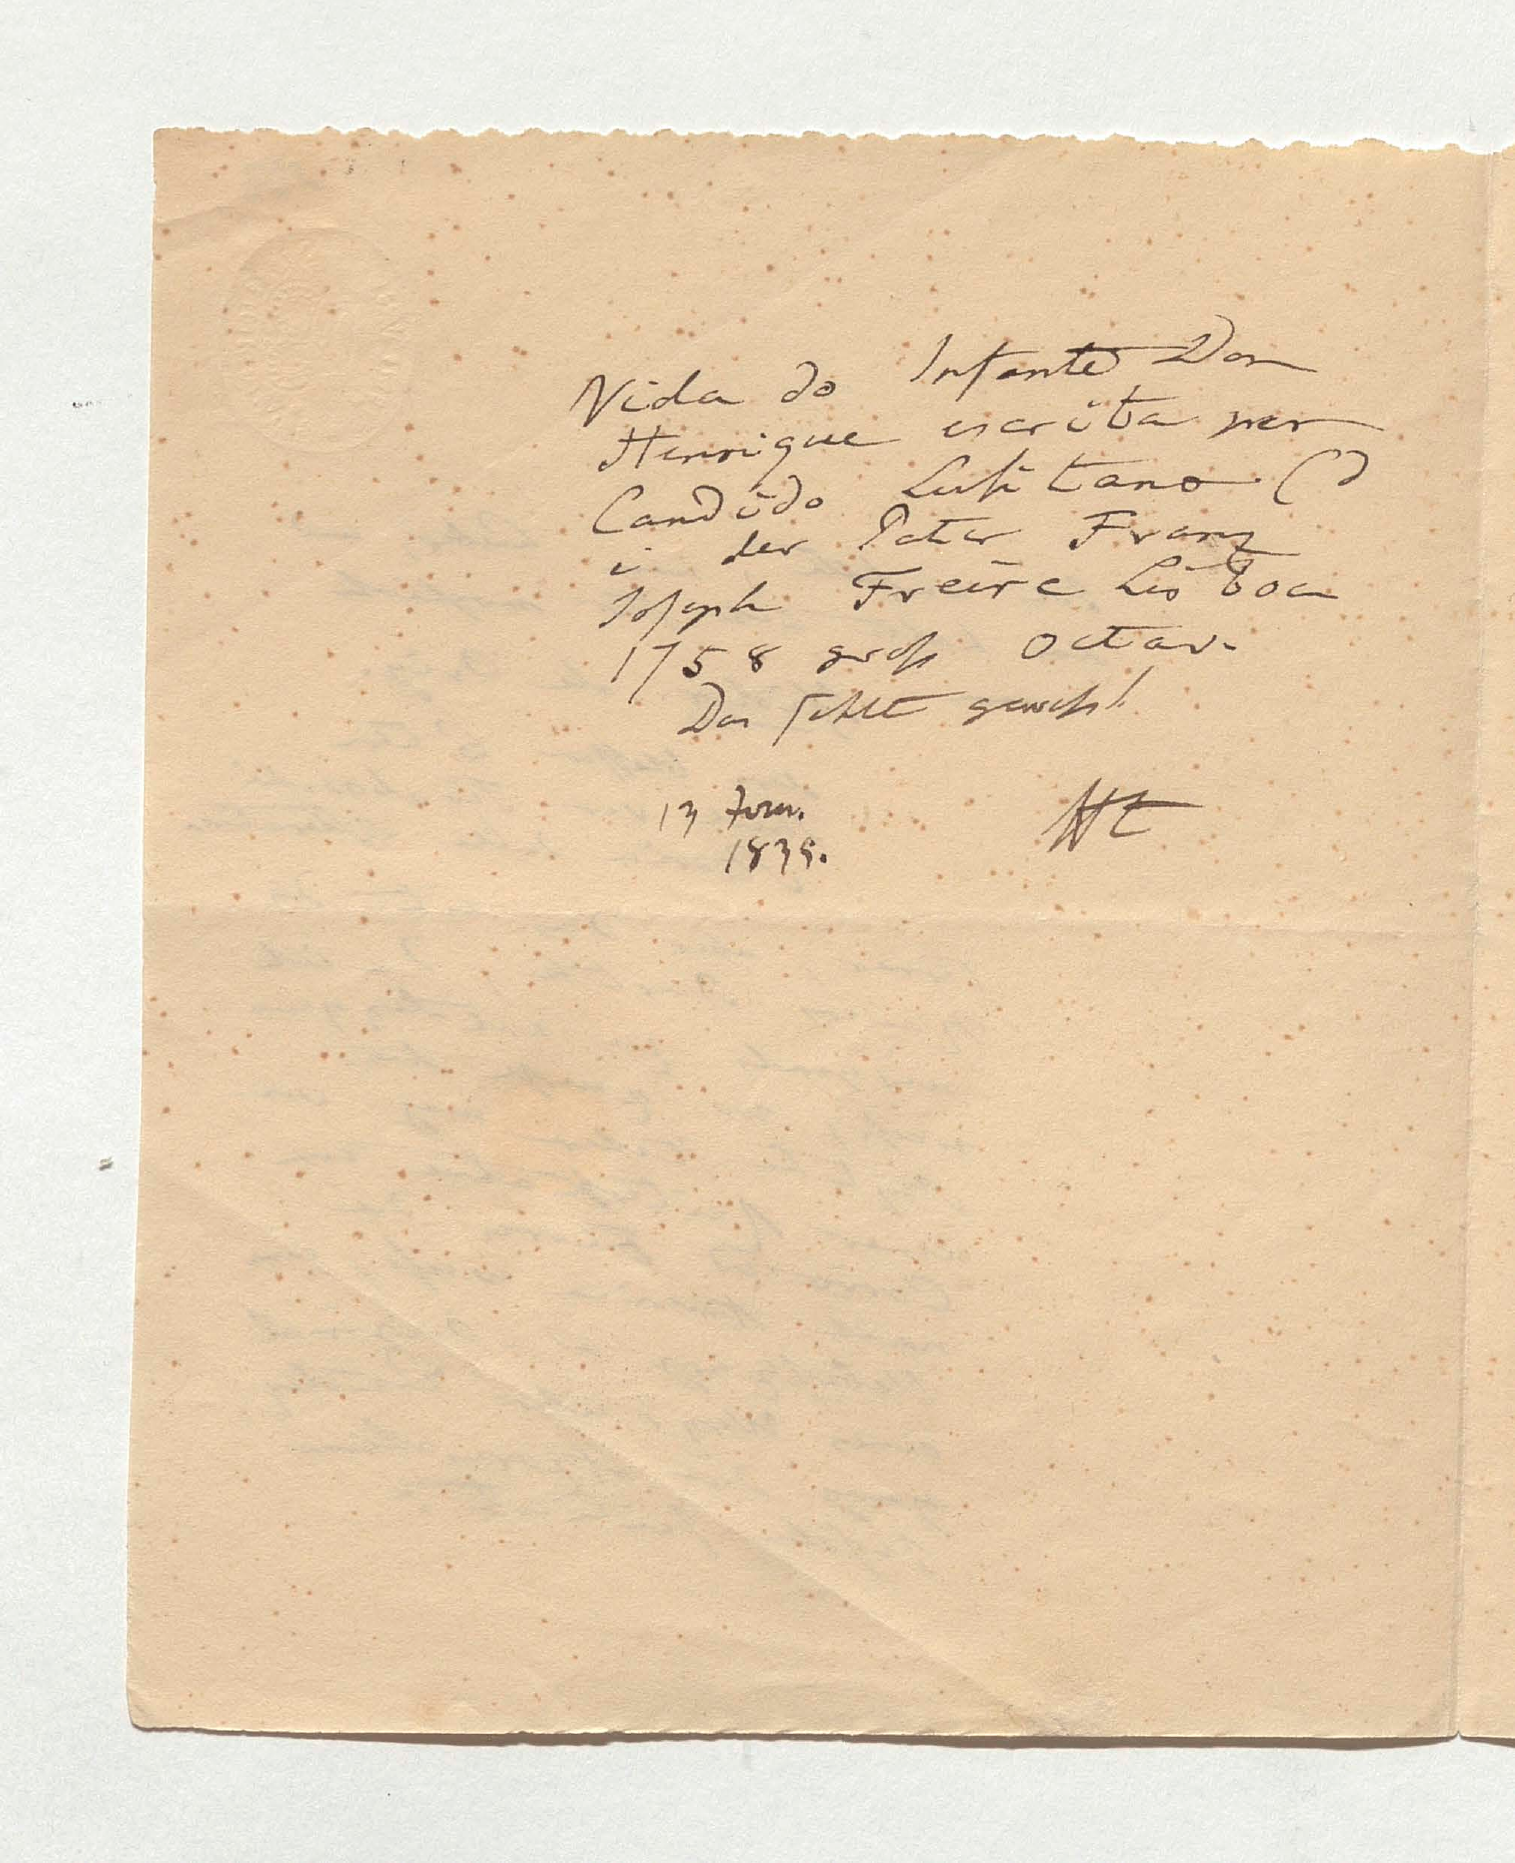 Vida do Infante Don
Henrique escrita per
Candido Lusitano (d
i der Pater Franz
Joseph Freire Lisboa
1758 groß Octav.
Das fehlt gewiß!
13 Jan. Ht
1839.